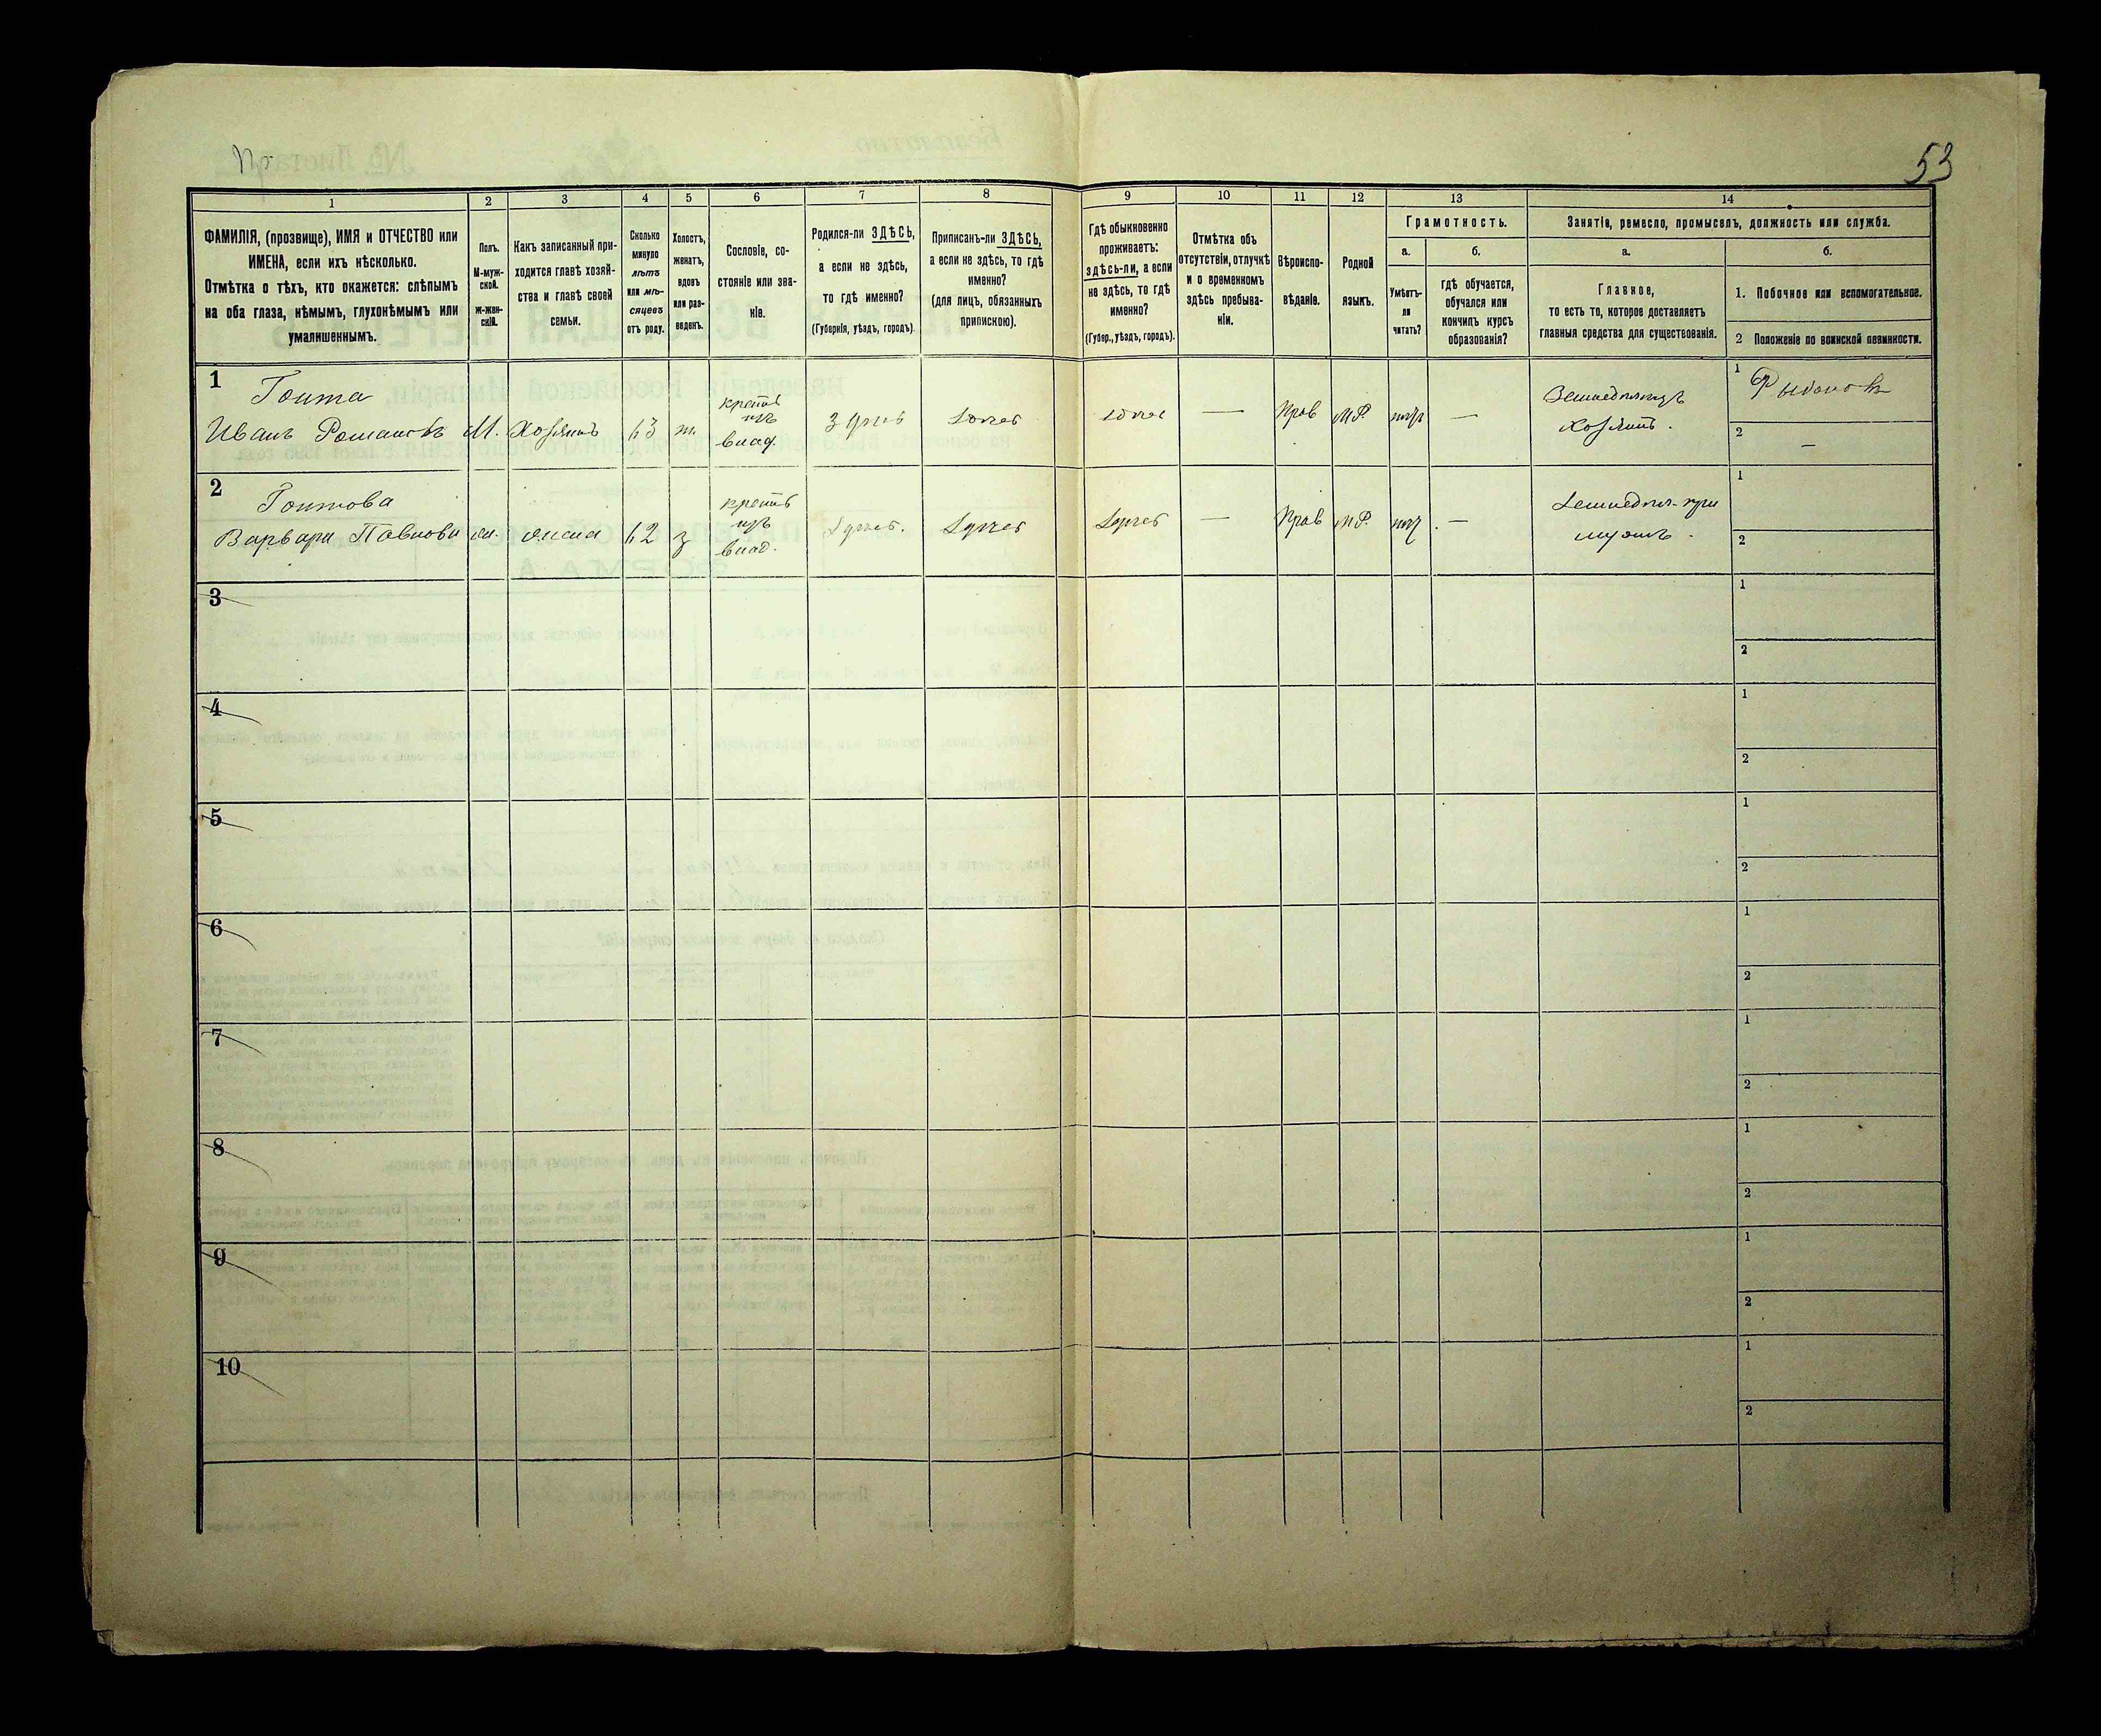 53
1
2
3
4
5
6
7
8
9
10
11
12
13
14
ФАМИЛІЯ, (прозвище), ИМЯ и ОТЧЕСТВО или
ИМЕНА, если ихъ нѣсколько.
Отмѣтка о тѣхъ, кто окажется: слѣпымъ
на оба глаза, нѣмымъ, глухонѣмымъ или
умалишеннымъ.
Полъ.
М-муж-
ской.
Ж-жен-
скій.
Какъ записанный при-
ходится главѣ хозяй-
ства и главѣ своей
семьи.
Сколько
минуло
лѣтъ
или мѣ-
сяцевъ
отъ роду.
Холостъ,
женатъ,
вдовъ
или раз-
веденъ.
Сословіе, со-
стояніе или зва-
ніе.
Родился-ли ЗДѢСЬ,
а если не здѣсь,
то гдѣ именно?
(Губернія, уѣздъ, городъ)
Приписанъ-ли ЗДѢСЬ,
а если не здѣсь, то гдѣ
именно?
(для лицъ, обязанныхъ
припискою).
Гдѣ обыкновенно
проживаетъ:
здѣсь-ли, а если
не здѣсь, то гдѣ
именно?
(Губер., уѣздъ, городъ).
Отмѣтка объ
отсутствіи, отлучкѣ
и о временномъ
здѣсь пребыва-
ніи.
Вѣроиспо-
вѣданіе.
Родной
языкъ.
Грамотность.
а.
Умѣетъ-
ли
читать?
б.
гдѣ обучается,
обучался или
кончилъ курсъ
образованія?
Занятіе, ремесло, промыселъ, должность или служба.
а.
Главное,
то есть то, которое доставляетъ
главныя средства для существованія.
б.
1. Побочное или вспомогательное.
2 Положеніе по воинской повинности.
1
Гонта
Иванъ Романовъ
М.
Хозяинъ
63
ж.
крестъ
изъ
влад.
Здѣсь
Здѣсь
здѣсь
—
Прав
МР.
нѣтъ
—
Земледѣлецъ
Хозяинъ.
1
2
—
2
Гонтова
Варвара Павлова
ж.
жена
62
з
крестъ
изъ
влад.
Здѣсь.
Здѣсь
Здѣсь
—
Прав
МР.
нѣтъ
—
Земледѣл. при
мужѣ.
1
2
3
1
2
4
1
2
5
1
2
6
1
2
7
1
2
8
1
2
9
1
2
10
1
2